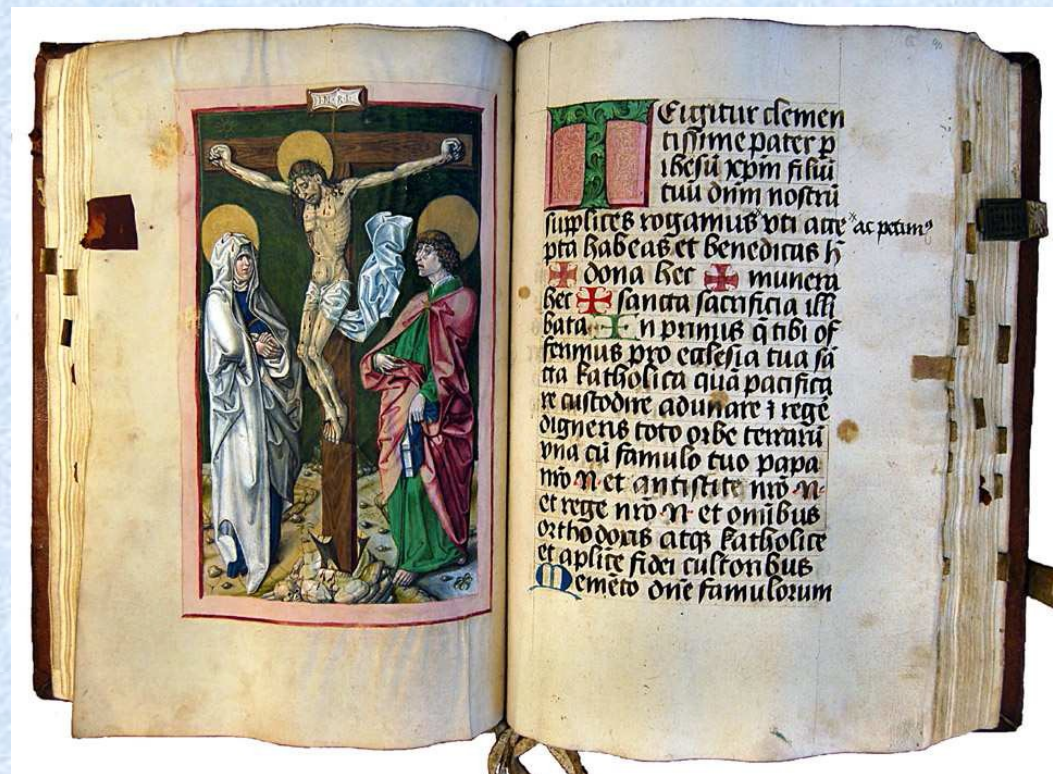 TEigitur clemen
tissime pater p
ihesū xpm filiū
tuū dnm nostrū
supplices rogamus vti acce ac petimꝰ
pta habeas et benedicas h̄
dona hec munera
hec sancta sacrificia illi
bata In primis q̄ tibi of
ferimus pro ecclesia tua sā
cta katholica quā pacifica
re custodire adunare ⁊ regē
digneris toto orbe terrarū
vna cū famulo tuo papa
nr̄o N et antistite nr̄o N
et rege nr̄o N et omībus
orthodoxis atqꝫ katholice
et aplice fidei cultoribus
Memēto dn̄e famulorum